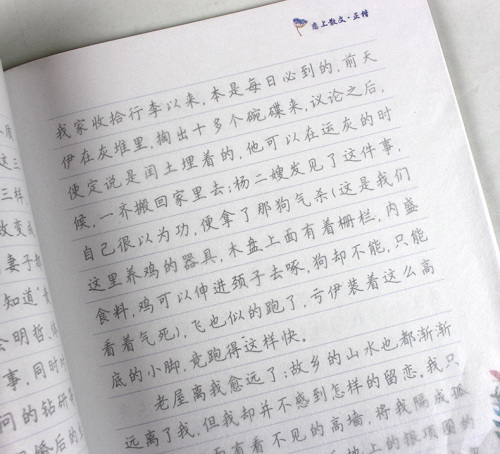 这三
三样
改变成
妻子
知道
明哲
事,同时
问的钻研
婚后的
恋上散文·正楷
我家收拾行李以来,本是每日必到的,前天
伊在灰堆里,掏出十多个碗碟来,议论之后,
便定说是闰土埋着的,他可以在运灰的时
候,一齐搬回家里去;杨二嫂发见了这件事,
自己很以为功,便拿了那狗气杀(这是我们
这里养鸡的器具,木盘上面有着栅栏,内盛
食料,鸡可以伸进颈子去啄,狗却不能,只能
看着气死),飞也似的跑了,亏伊装着这么高
底的小脚,竟跑得这样快。
老屋离我愈远了;故乡的山水也都渐渐
远离了我,但我却并不感到怎样的留恋。我只
面有看不见的高墙,将我隔成孤
地上的银项圈的